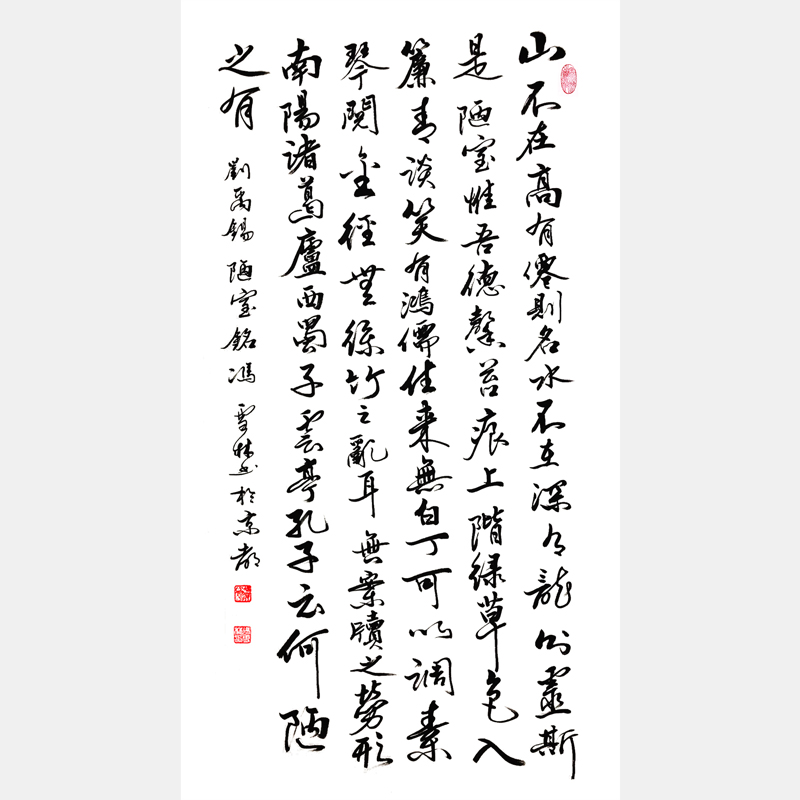 山不在高有僊則名水不在深有龍則靈斯
是陋室惟吾德馨苔痕上階緑草色入
簾青談笑有鴻儒往来無白丁可以調素
琴閲金經無絲竹之亂耳無案牘之勞形
南陽諸葛廬西蜀子雲亭孔子云何陋
之有
劉禹錫陋室銘馮雪林書於京都